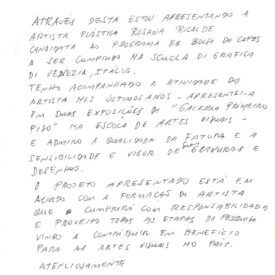 ATRAVÉS DESTA ESTOU APRESENTANDO A
ARTISTA PLÁSTICA ROSANA RICALDE
CANDIDATA AO PROGRAMA DE BOLSA DA CAPES
A SER CUMPRIDA NA SCUOLA DI GRAFICO
DI VENEZIA, ITÁLIA.
TENHO ACOMPANHADO A ATIVIDADE DA
ARTISTA NOS ÚLTIMOS ANOS - APRESENTEI-A
EM DUAS EXPOSIÇÕES DA "GALERIA PRIMEIRO
PISO" NA ESCOLA DE ARTES VISUAIS -
E ADMIRO A QUALIDADE DA FATURA E A
SENSIBILIDADE E VIGOR DE SUAS GRAVURAS E
DESENHOS.
O PROJETO APRESENTADO ESTÁ EM
ACORDO COM A FORMAÇÃO DA ARTISTA
QUE O CUMPRIRÁ COM RESPONSABILIDADE
E PROVEITO TODAS AS ETAPAS DA PESQUISA
VINDO A CONTRIBUIR EM BENEFÍCIO
PARA AS ARTES VISUAIS NO PAÍS.
ATENCIOSAMENTE